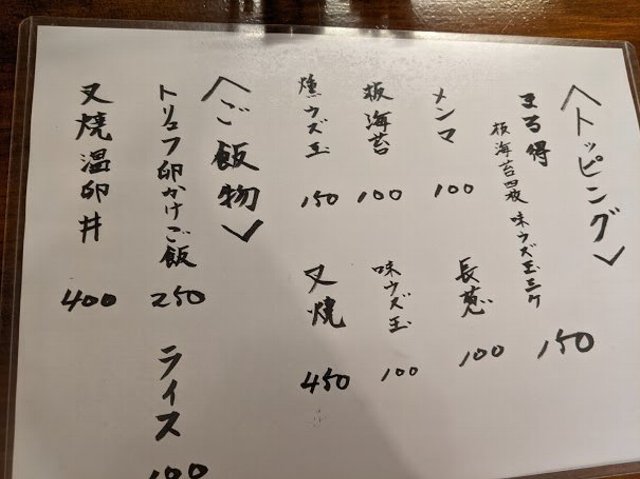 〈トッピング〉
まる得
板海苔四枚 味ウズ玉三ケ
150
メンマ
100
長葱
100
板海苔
100
味ウズ玉
100
燻ウズ玉
150
叉焼
450
〈ご飯物〉
トリュフ卵かけご飯
250
ライス
100
叉焼温卵丼
400